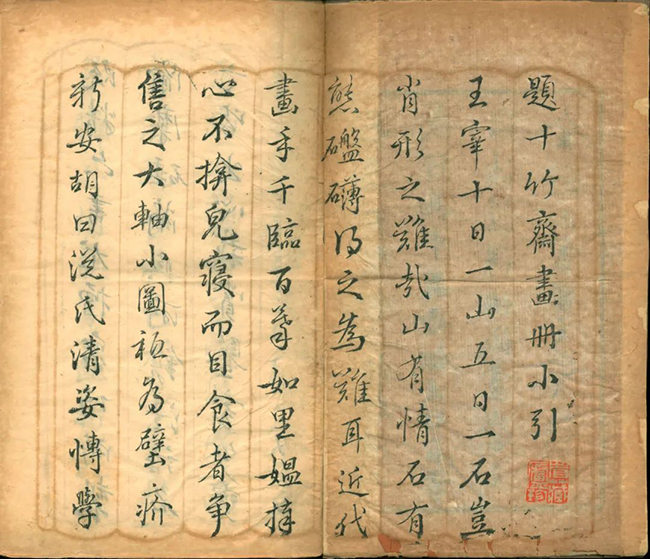 題十竹齋畫冊小引
王宰十日一山五日一石豈
肖形之難哉山有情石有
態礴得之為難耳近代
畫手千臨百摹如里媼捧
心不揜皃寢而目食者爭
售之大軸小圖秪為壁疥
新安胡曰從氏清姿博學